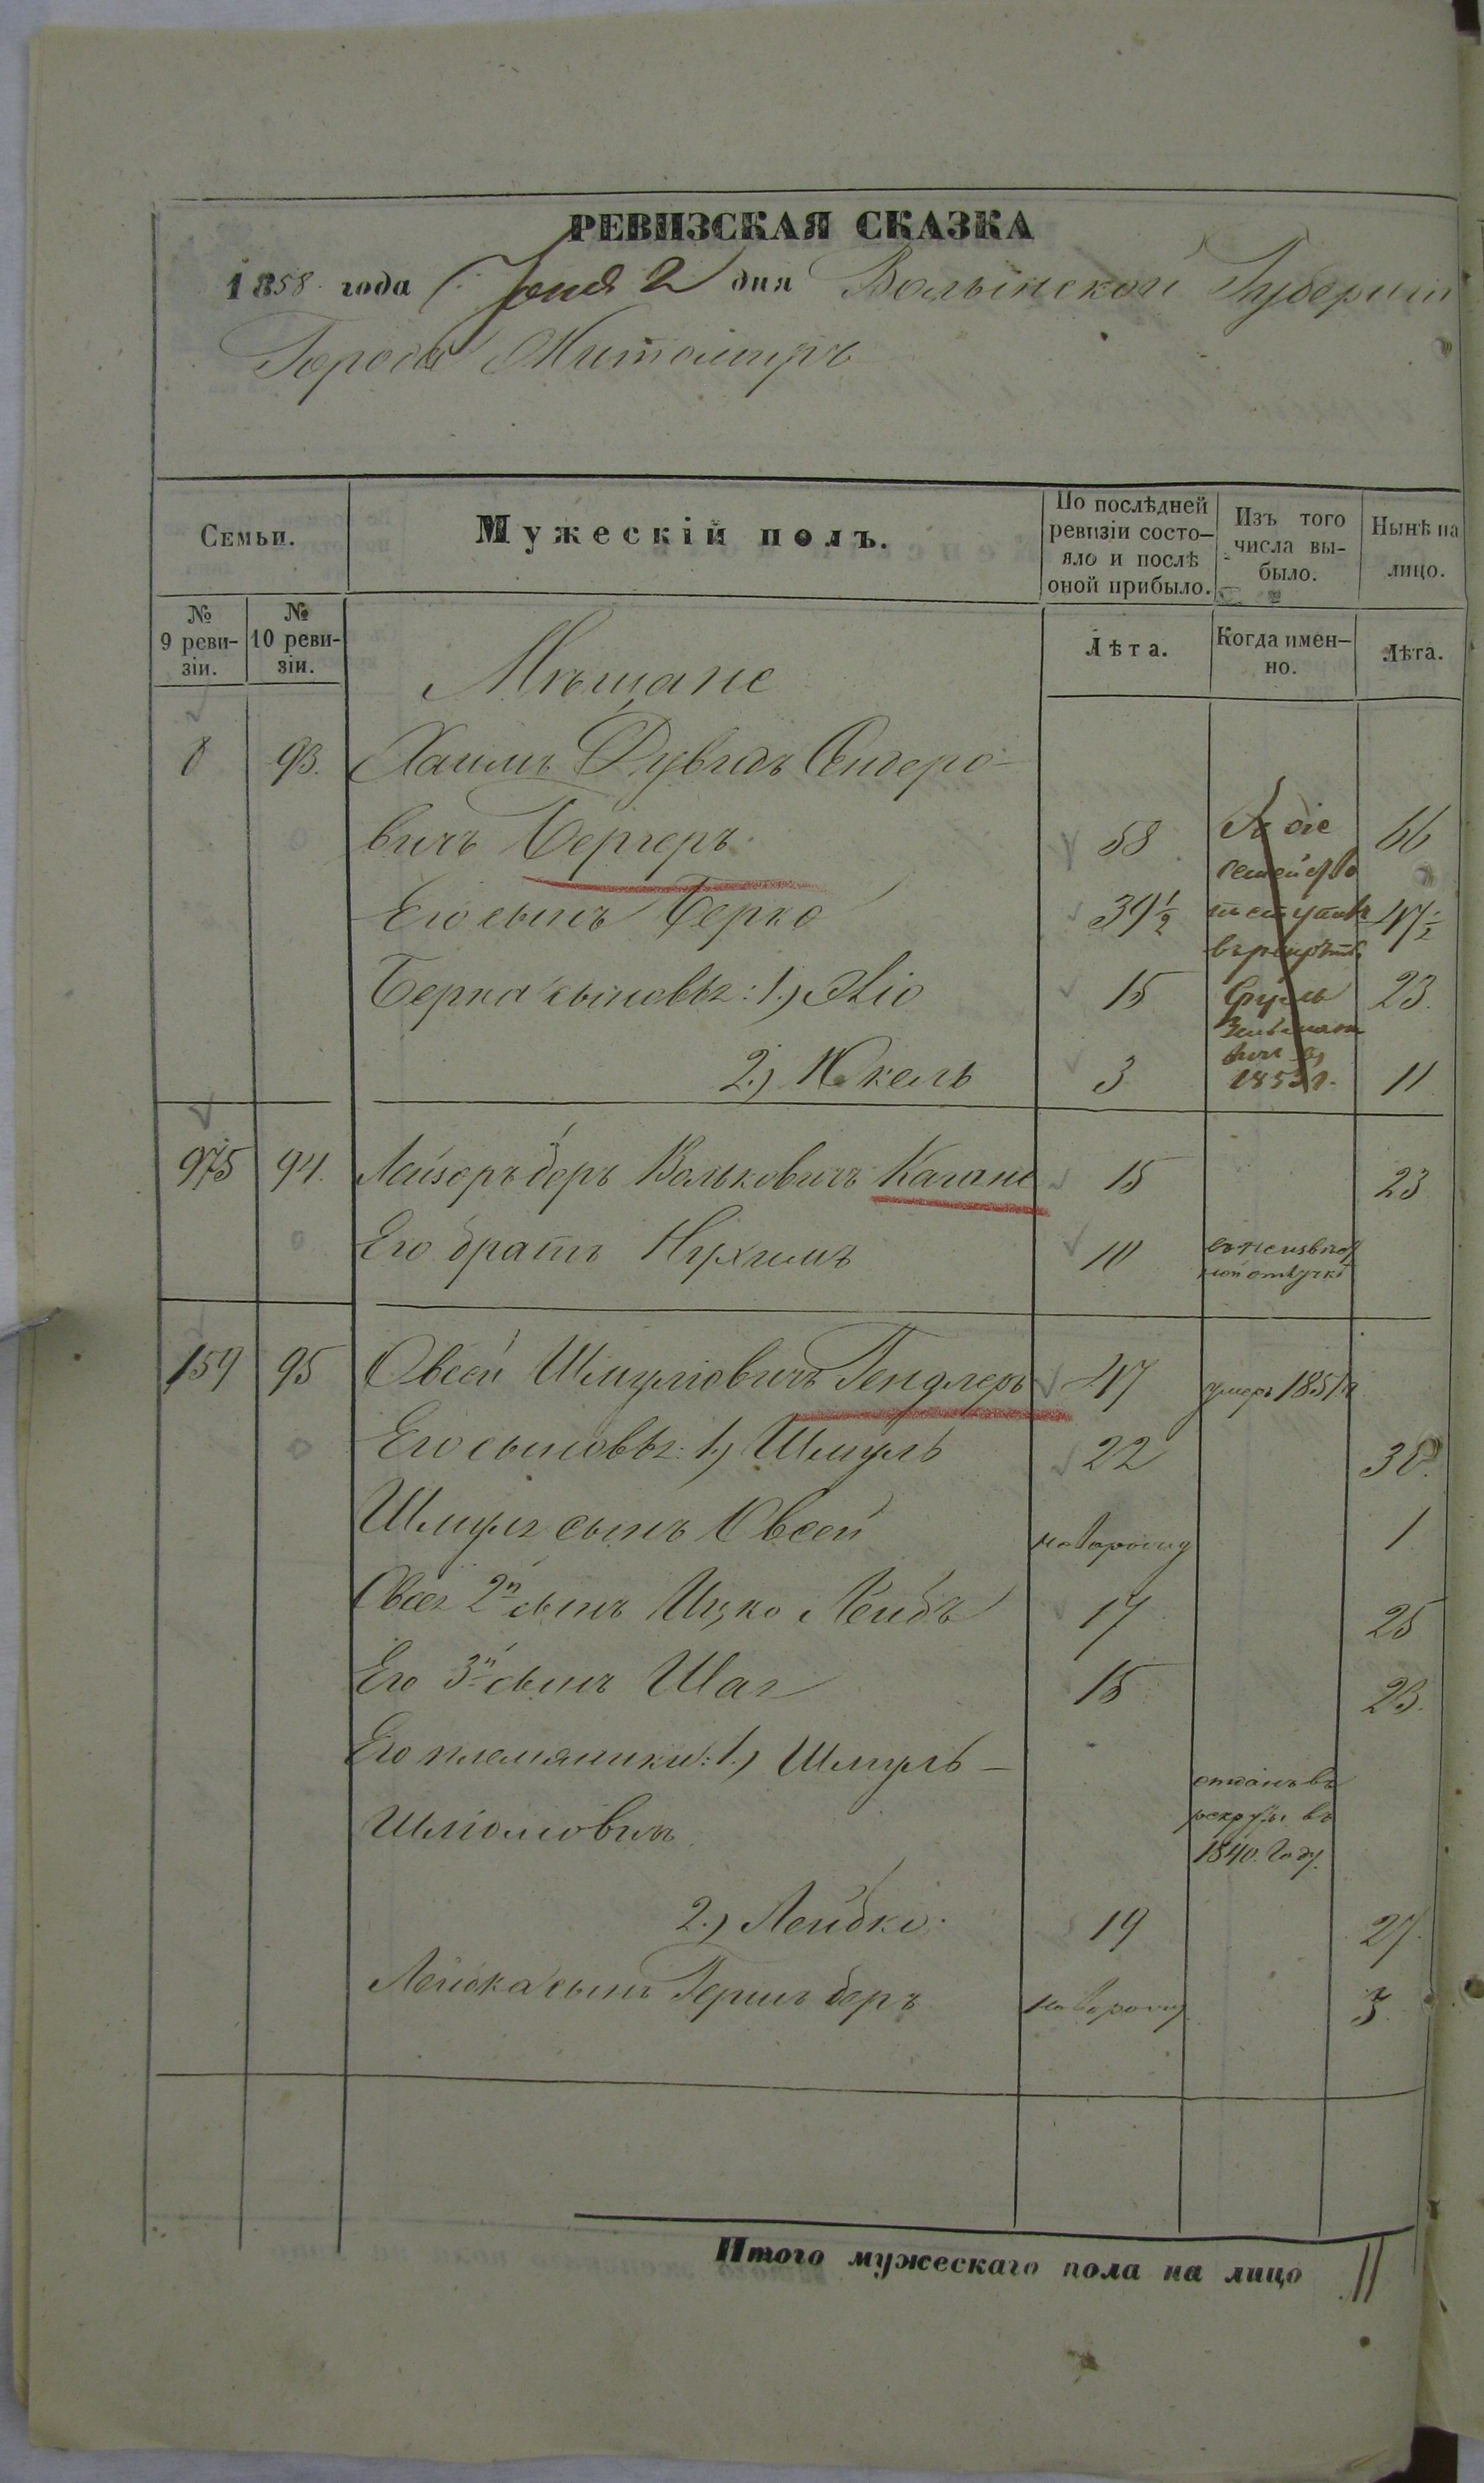 РЕВИЗСКАЯ СКАЗКА
1858 года Іюня 2 дня Волынской Губерніи
Города Житомиръ
Семьи. Мужескій полъ. По послѣдней ревизіи состо-яло и послѣ оной прибыло. Изъ того числа вы-было. Нынѣ на лицо.
№ 9 реви-зіи. № 10 реви-зіи. Лѣта. Когда имен-но. Лѣта.
Мѣщане
8 93. Хаимъ Дувидъ Сендеро-
вичъ Бергеръ 58 66
Его сынъ Берко 39½ 47½
Берка сыновья: 1.) 15 23.
2.) Юкель 3 1853 г. 11
975 94. Лейзоръ беръ Вольковичъ Кагане 15 23
Его братъ Нухимъ 10 отлучкѣ
159 95 Овсей Шмулiовичъ Гендлеръ 47 умеръ 1851
Его сыновья: 1) Шмуль 22 30.
Шмуля сынъ Овсей новорожд 1
Овсея 2й сынъ Ицко Лейбъ 17 25
Его 3й сынъ Шая 15 23.
Его племяники: 1.) Шмуль –
Шліомовичъ отданъ въ рекруты въ 1840. Году.
2.) Лейбко 19 27.
Лейбка сынъ Гершъ беръ новорожд 3.
Итого мужескаго пола на лицо 11